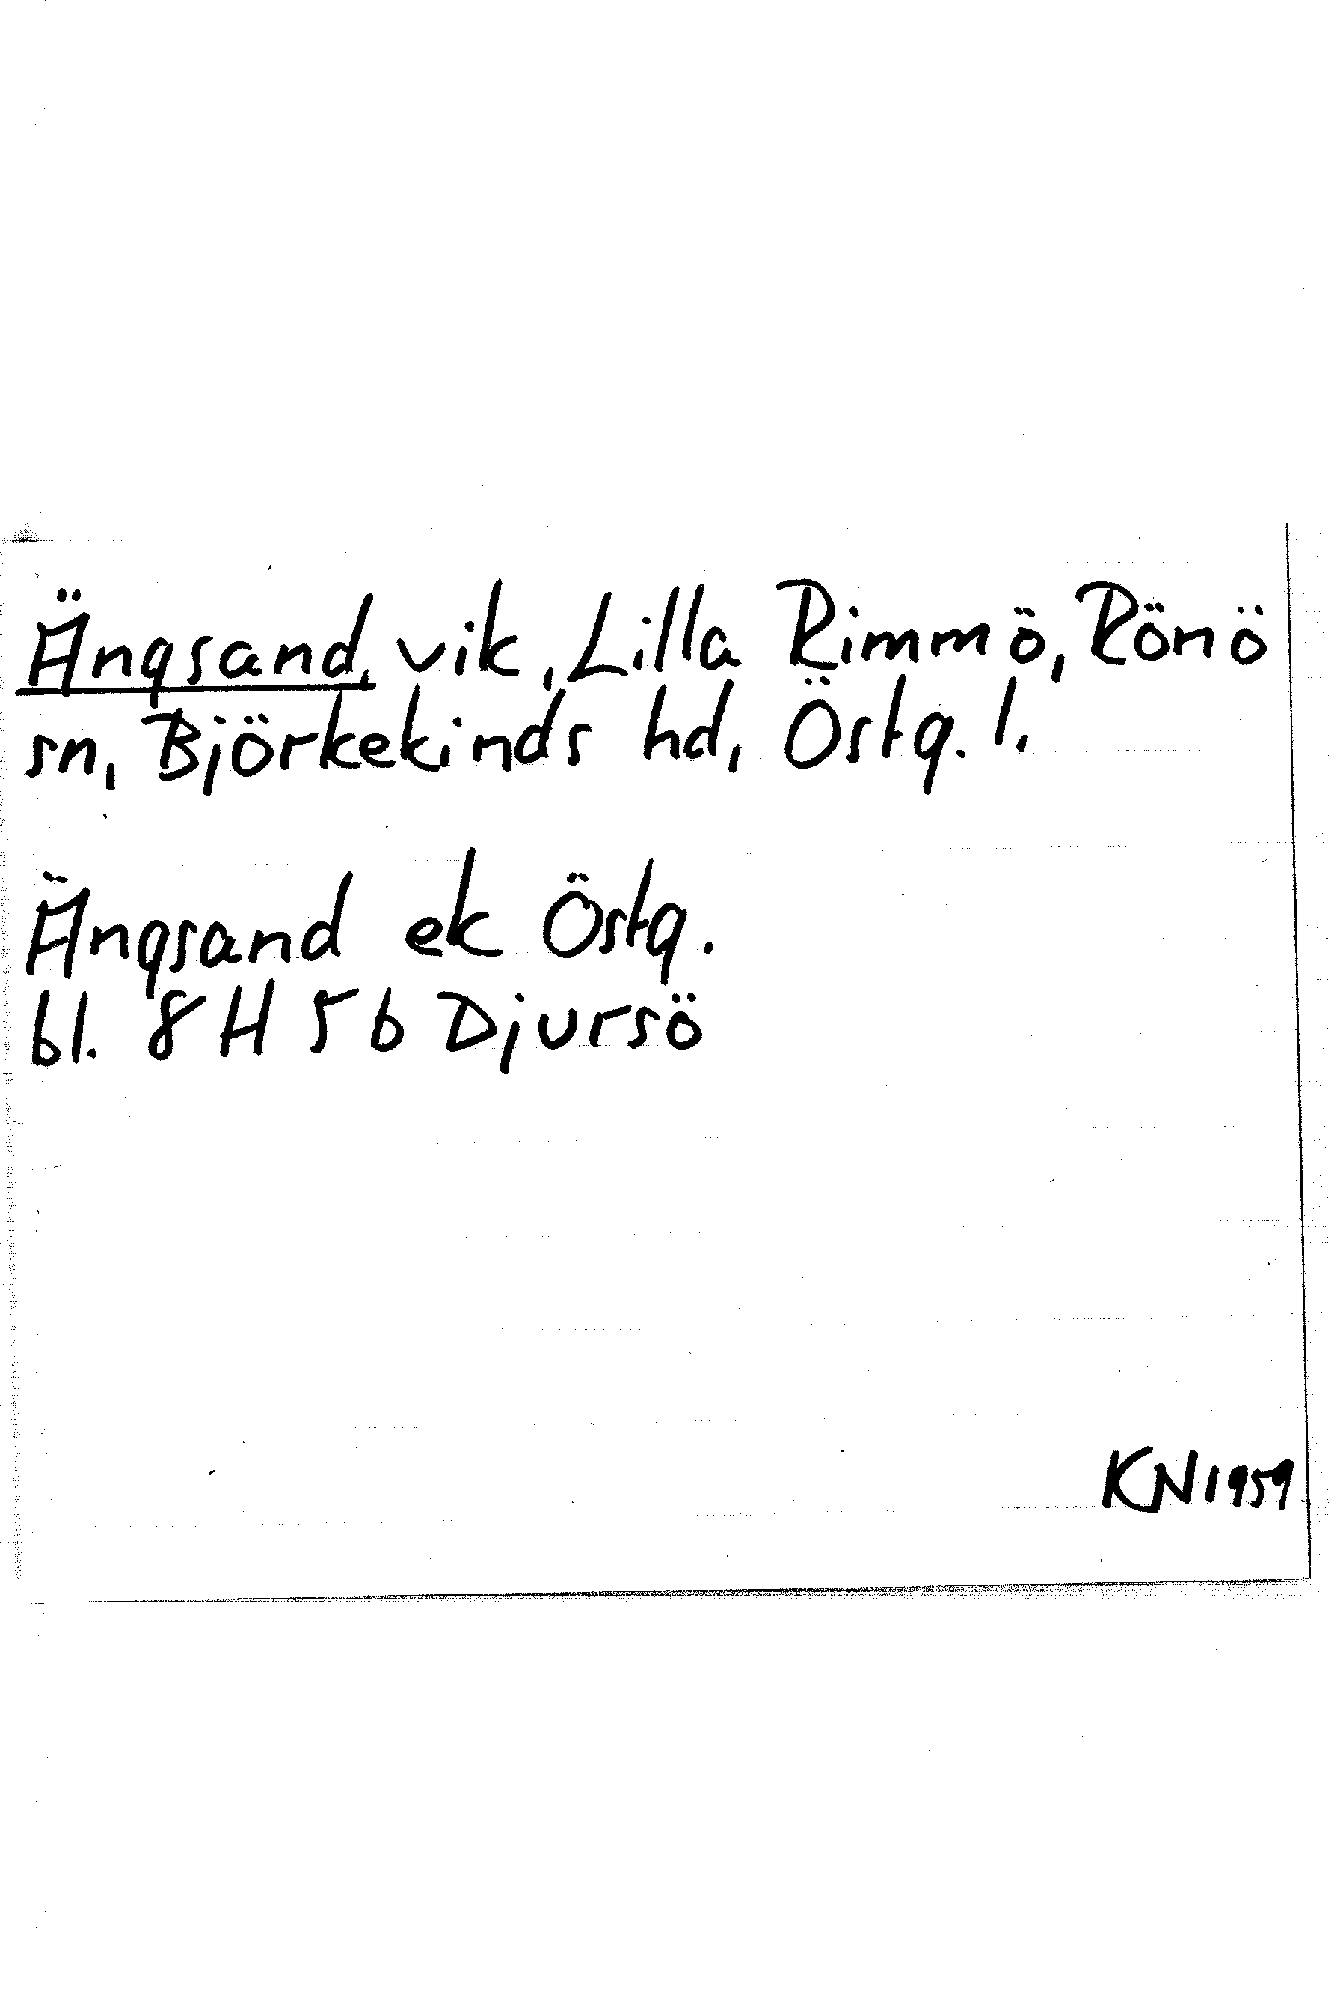 Ängsand, vik, Lilla Rimmö, Rönö
sn, Björkekinds hd, Östg. l.
Ängsand ek Östg.
bl. 8 H 5 b Djursö
KN 1959